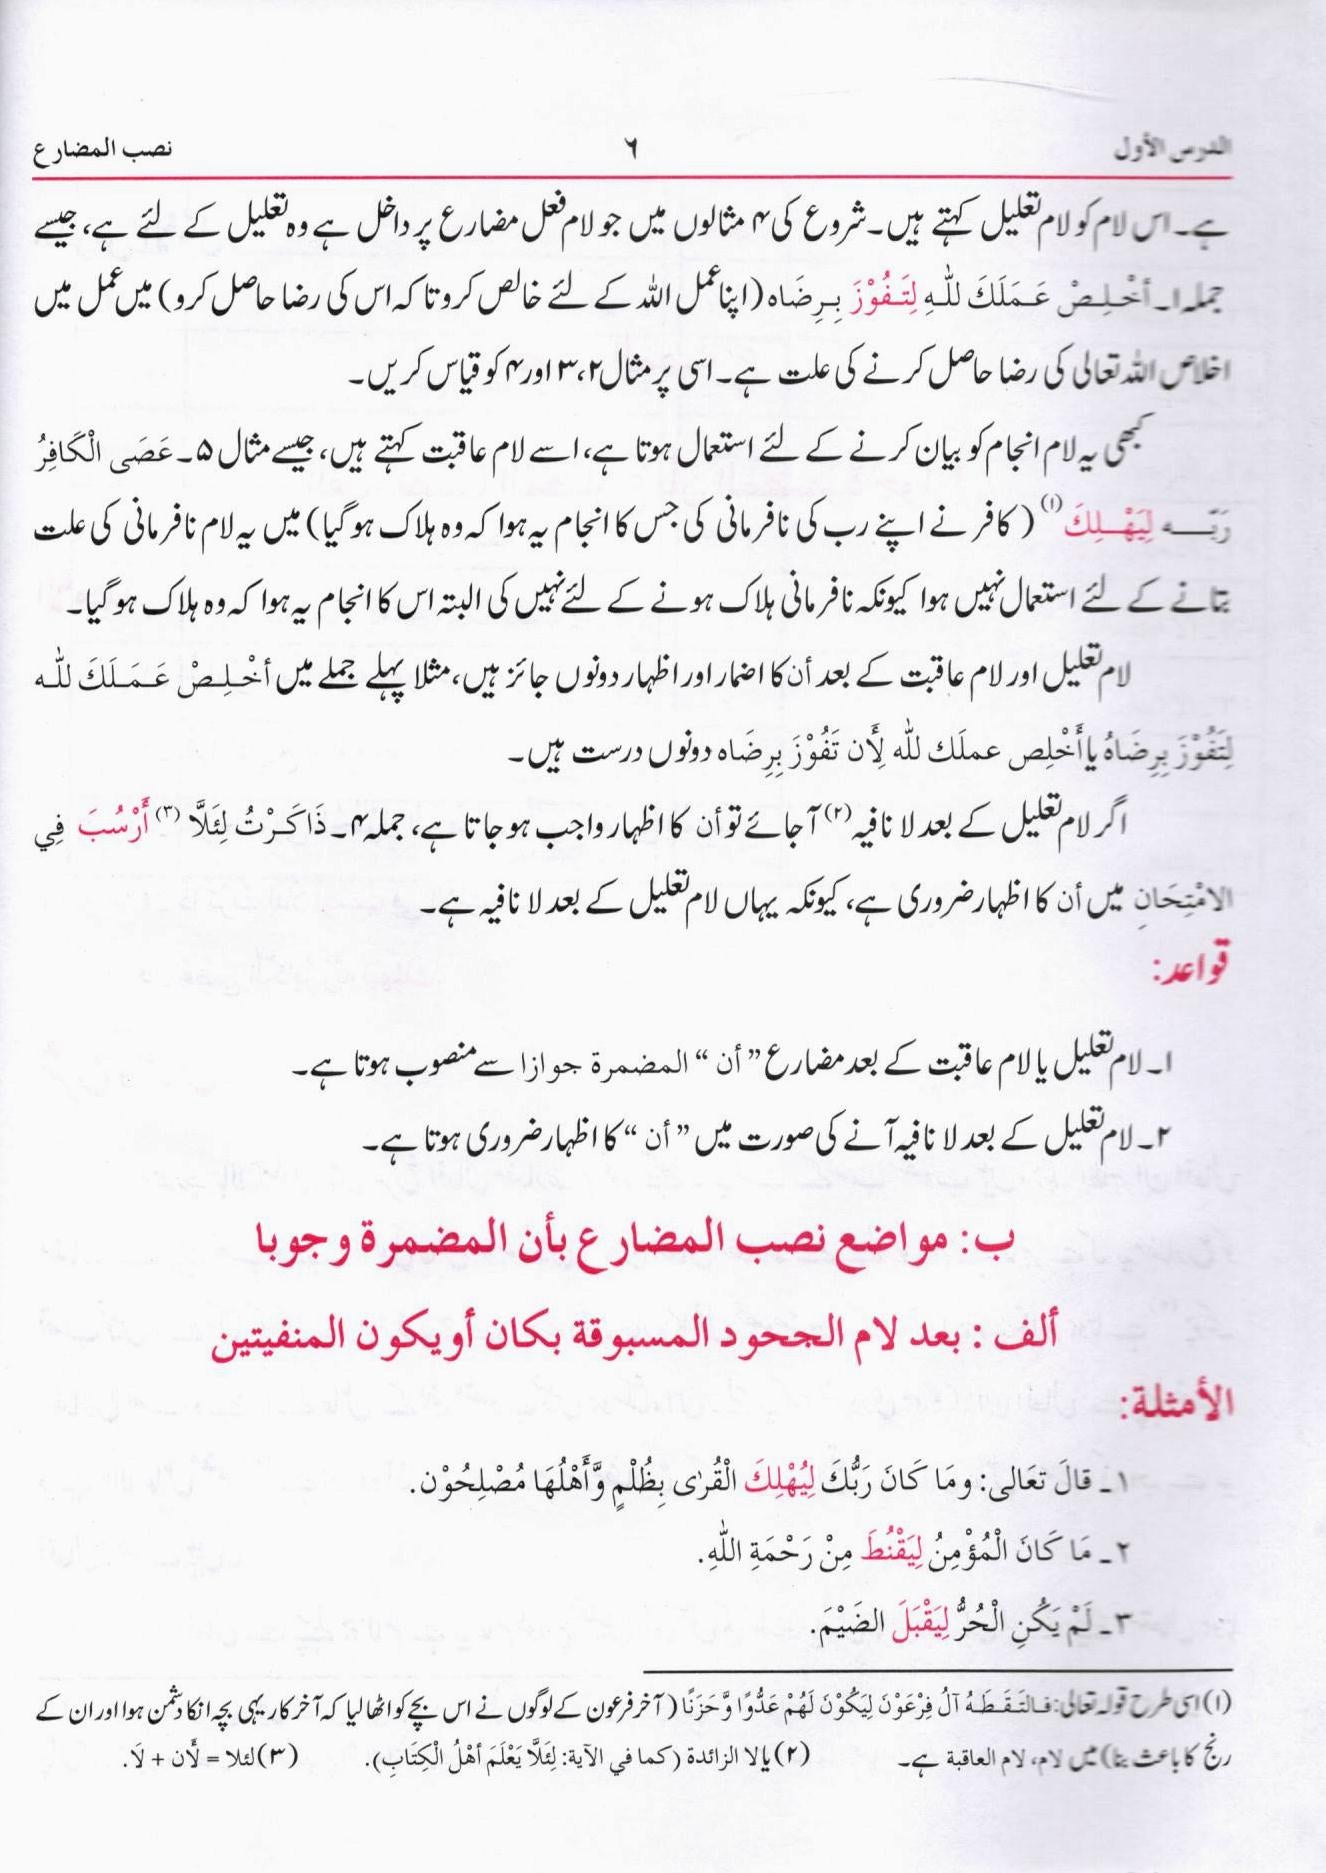 الدرس الأول ٦ نصب المضارع
ہے۔ اس لام کو لام تعلیل کہتے ہیں۔ شروع کی ۴ مثالوں میں جو لام فعل مضارع پر داخل ہے وہ تعلیل کے لئے ہے، جیسے
جملہ ۱۔ أخْـلِـصْ عَـمَلَكَ للّٰـهِ لِتَـفُوْزَ بِـرِضَاه (اپنا عمل اللہ کے لئے خالص کرو تا کہ اس کی رضا حاصل کرو) میں عمل میں
اخلاص اللہ تعالی کی رضا حاصل کرنے کی علت ہے۔ اسی پر مثال ۲،۳ اور ۴ کو قیاس کریں۔
کبھی یہ لام انجام کو بیان کرنے کے لئے استعمال ہوتا ہے، اسے لام عاقبت کہتے ہیں، جیسے مثال ۵۔ عَصَى الْكَافِرُ
رَبَّـــه لِيَهْـلِكَ (۱) (کافر نے اپنے رب کی نافرمانی کی جس کا انجام یہ ہوا کہ وہ ہلاک ہو گیا) میں یہ لام نافرمانی کی علت
بتانے کے لئے استعمال نہیں ہوا کیونکہ نافرمانی ہلاک ہونے کے لئے نہیں کی البتہ اس کا انجام یہ ہوا کہ وہ ہلاک ہو گیا۔
لام تعلیل اور لام عاقبت کے بعد أن کا اضمار اور اظہار دونوں جائز ہیں، مثلا پہلے جملے میں أخْـلِـصْ عَـمَـلَكَ للّٰـه
لِتَفُوْزَ بِرِضَاهُ یا أَخْلِص عملَك لله لِأَن تَفُوْزَ بِرِضَاه دونوں درست ہیں۔
اگر لام تعلیل کے بعد لا نافیہ (۲) آ جائے تو أن کا اظہار واجب ہو جاتا ہے، جملہ ۴۔ ذَاكَـرْتُ لِئَلَّا (۳) أَرْسُبَ فِي
الامْتِحَانِ میں أن کا اظہار ضروری ہے، کیونکہ یہاں لام تعلیل کے بعد لا نافیہ ہے۔
قواعد:
۱۔ لام تعلیل یا لام عاقبت کے بعد مضارع ”أن“ المضمرة جوازا سے منصوب ہوتا ہے۔
۲۔ لام تعلیل کے بعد لا نافیہ آنے کی صورت میں ”أن“ کا اظہار ضروری ہوتا ہے۔
ب: مواضع نصب المضارع بأن المضمرة وجوبا
ألف : بعد لام الجحود المسبوقة بكان أو يكون المنفيتين
الأمثلة:
١ـ قالَ تَعَالى: ومَا كَانَ رَبُّكَ لِيُهْلِكَ الْقُرٰى بِظُلْمٍ وَّأَهْلُهَا مُصْلِحُوْن.
٢ـ مَا كَانَ الْمُؤْمِنُ لِيَقْنُطَ مِنْ رَحْمَةِ اللّٰهِ.
٣ـ لَمْ يَكُنِ الْحُرُّ لِيَقْبَلَ الضَيْمَ.
(۱) اسی طرح قولہ تعالی: فـالتَـقَـطَـهُ آلُ فِرْعَوْنَ لِيَكُوْنَ لَهُمْ عَدُوًّا وَّحَزَنًا (آخر فرعون کے لوگوں نے اس بچے کو اٹھا لیا کہ آخر کار یہی بچہ انکا دشمن ہوا اور ان کے
رنج کا باعث بنا) میں لام، لام العاقبة ہے۔ (۲) یا لا الزائدة (كما في الآية: لِئَلَّا يَعْلَمَ أهْلُ الْكِتَابِ). (۳) لئلا = لَأن + لَا.